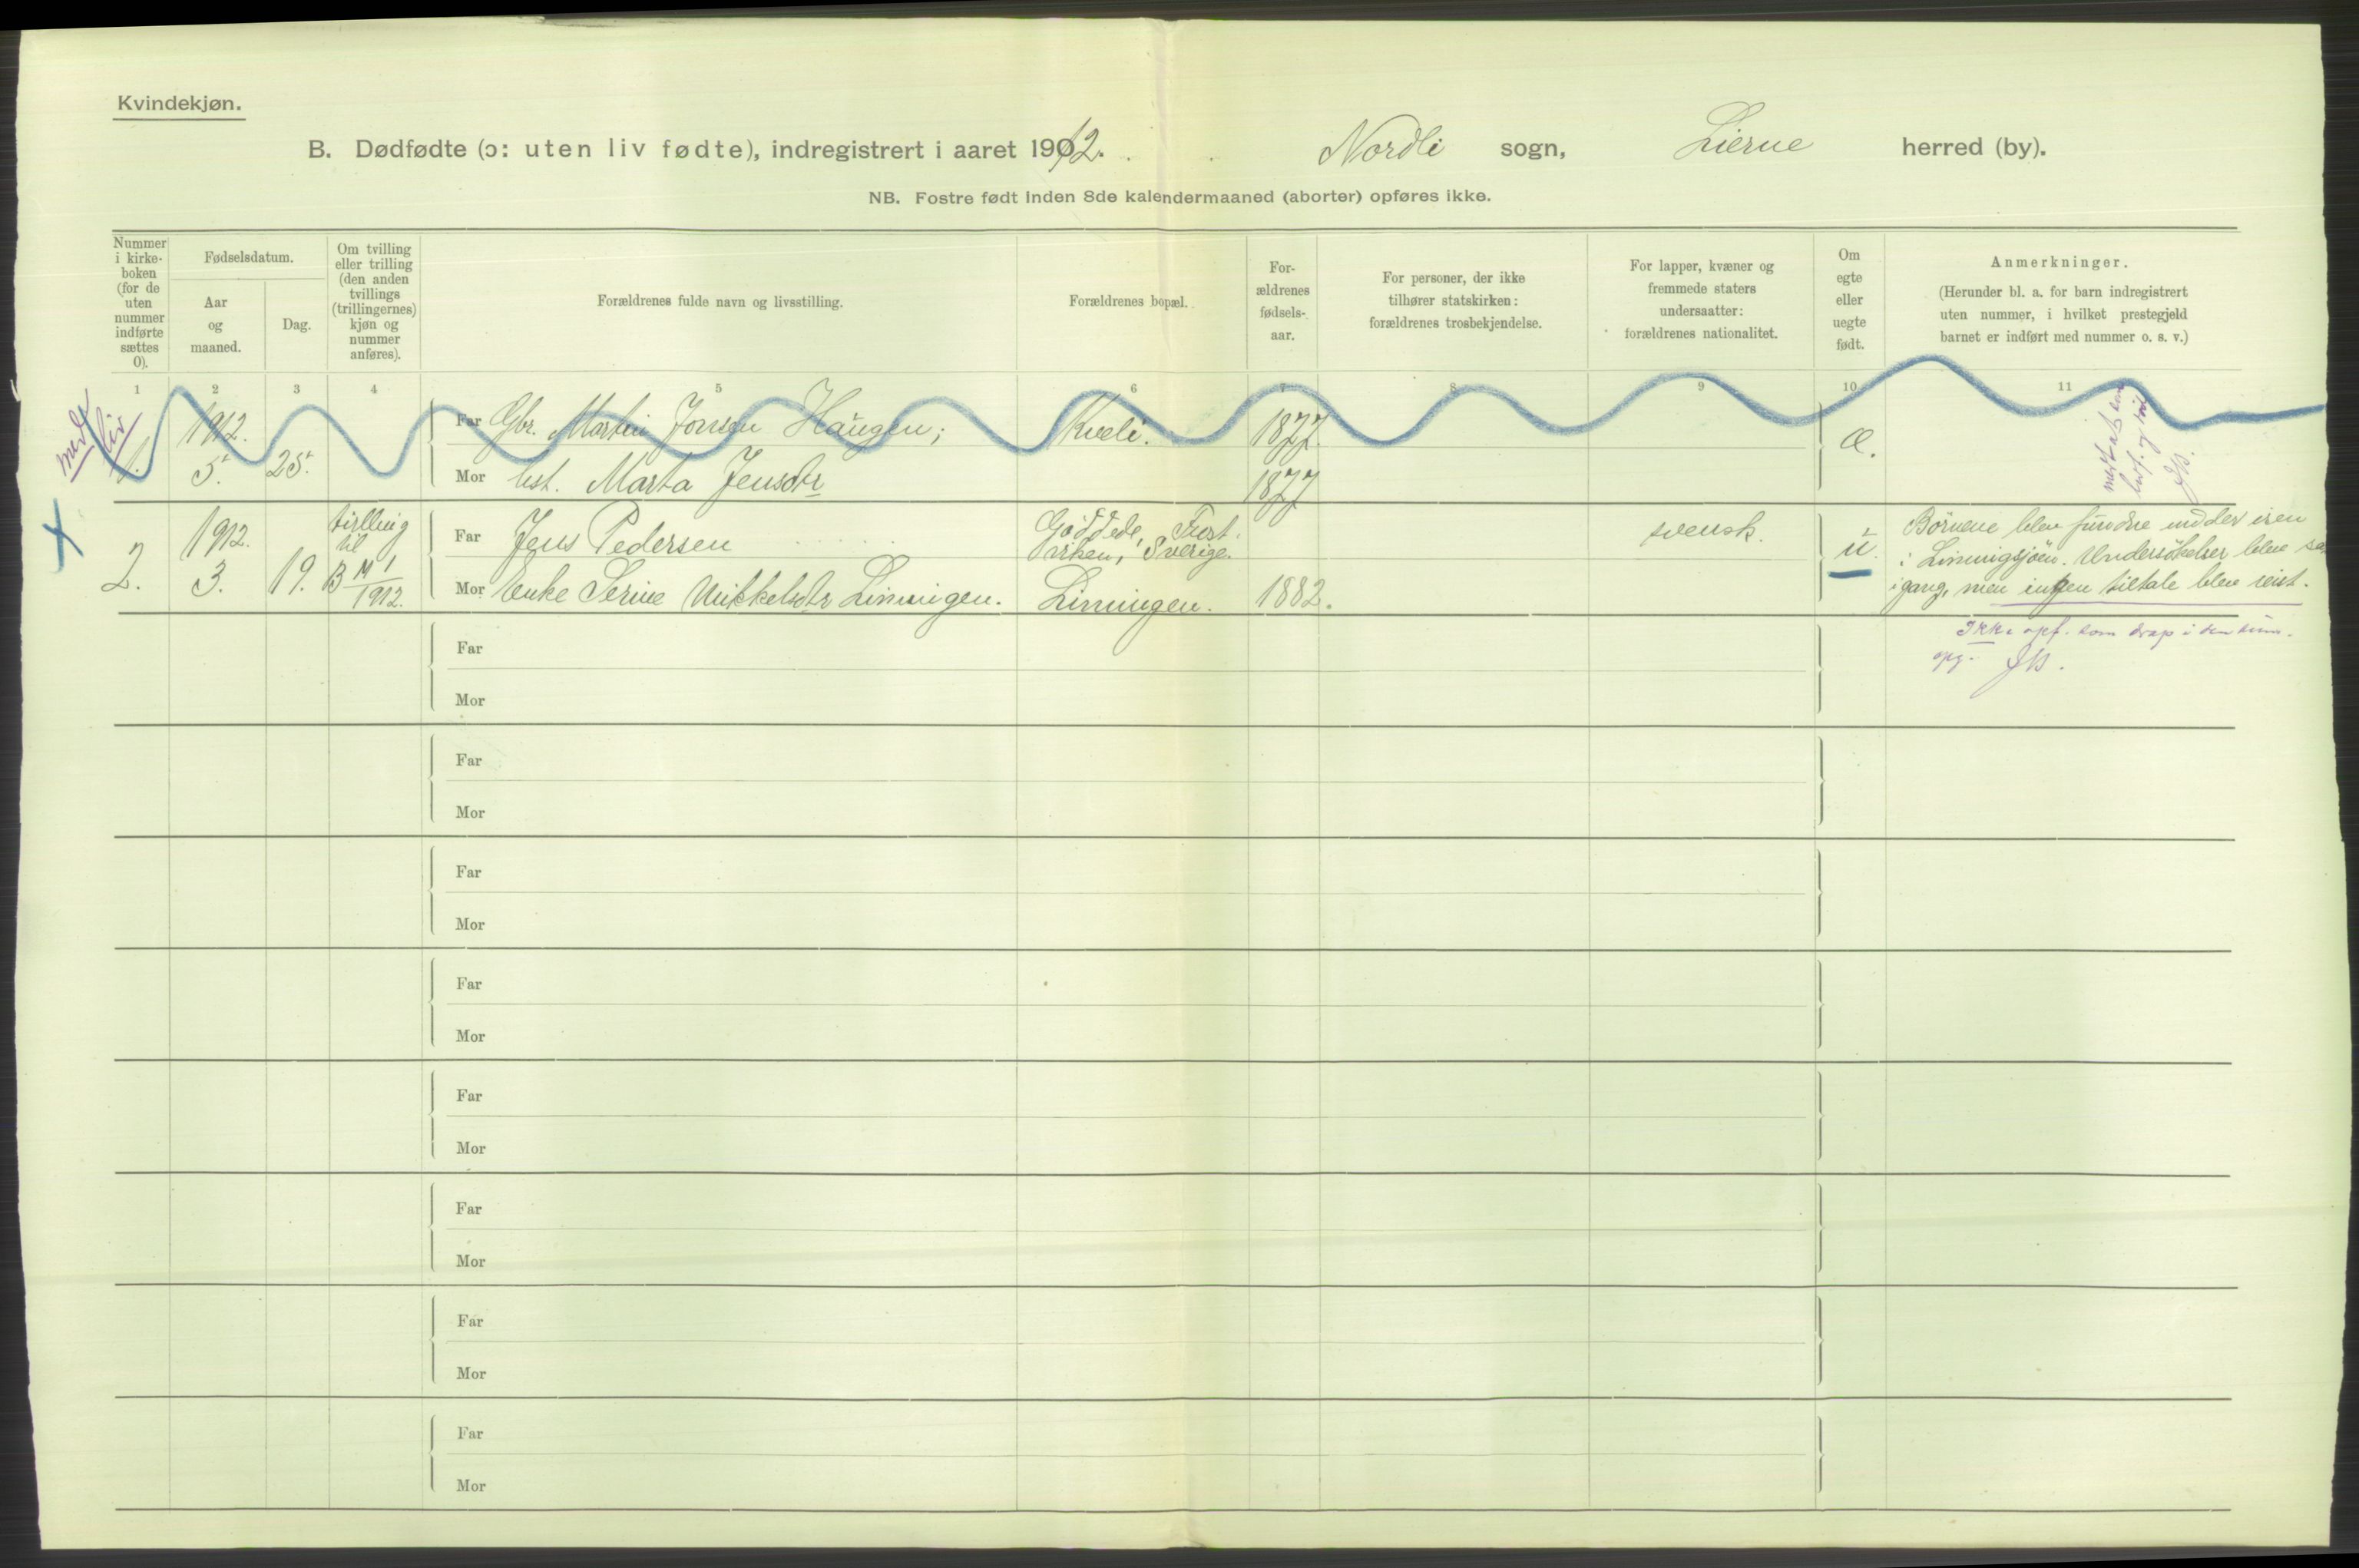 Kvindekjøn.
B. Dødfødte (ɔ: uten liv fødte), indregistrert i aaret 1912. Nordli sogn, Lierne herred (by).
NB. Fostre født inden 8de kalendermaaned (aborter) opføres ikke.
Nummer
i kirke-
boken
(for de
uten
nummer
indførte
sættes
0).
Fødselsdatum.
Aar
og
maaned.
Dag.
Om tvilling
eller trilling
(den anden
tvillings
(trillingernes)
kjøn og
nummer
anføres).
Forældrenes fulde navn og livsstilling.
Forældrenes bopæl.
For-
ældrenes
fødsels-
aar.
For personer, der ikke
tilhører statskirken:
forældrenes trosbekjendelse.
For lapper, kvæner og
fremmede staters
undersaatter:
forældrenes nationalitet.
Om
egte
eller
uegte
født.
Anmerkninger.
(Herunder bl. a. for barn indregistrert
uten nummer, i hvilket prestegjeld
barnet er indført med nummer o. s. v.)
1 2 3 4 5 6 7 8 9 10 11
med
liv
1.
1912.
5. 25.
Far Gbr. Martin Jonsen Haugen; Kveli. 1877.
Mor hst. Marta Jensdtr 1877
æ.
2.
1912.
3. 19.
tvilling
til
B № 1
1912.
Far Jens Pedersen
Gäddede, Frost-
viken, Sverige.
svensk.
Mor Enke Serine Mikkelsdtr Linningen. Linningen. 1882.
u.
Börnene blev fundne under isen
i Linningsjöen. Undersökelser blev sat
igang, men ingen tiltale blev reist.
Ikke opf. som drap i
opg.
Far
Mor
Far
Mor
Far
Mor
Far
Mor
Far
Mor
Far
Mor
Far
Mor
Far
Mor